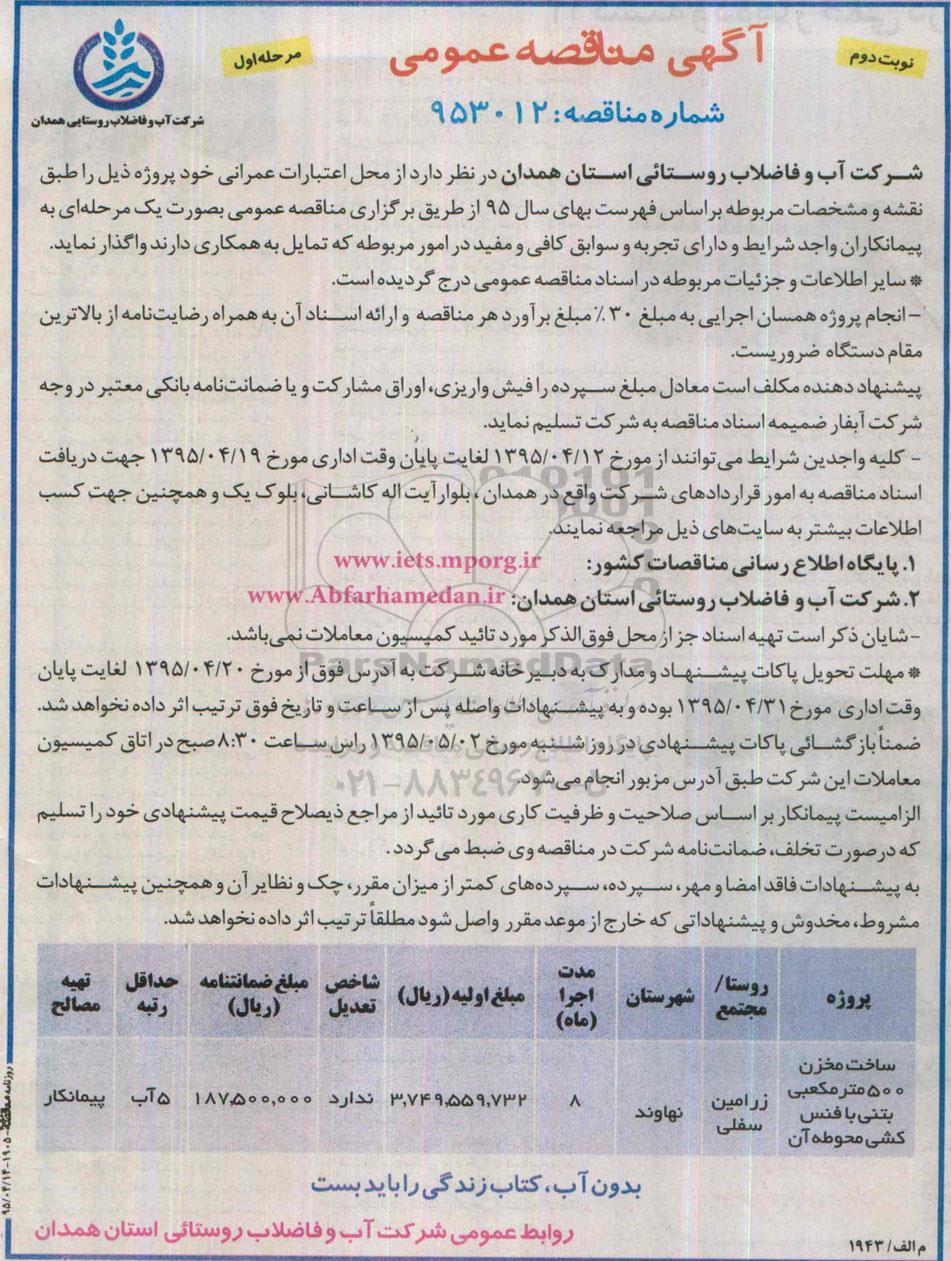 نوبت دوم
آگهی مناقصه عمومی
مرحله اول
شماره مناقصه: ۹۵۳۰۱۲
شرکت آب و فاضلاب روستایی همدان
شرکت آب و فاضلاب روستائی استان همدان در نظر دارد از محل اعتبارات عمرانی خود پروژه ذیل را طبق
نقشه و مشخصات مربوطه براساس فهرست بهای سال ۹۵ از طریق برگزاری مناقصه عمومی بصورت یک مرحله‌ای به
پیمانکاران واجد شرایط و دارای تجربه و سوابق کافی و مفید در امور مربوطه که تمایل به همکاری دارند واگذار نماید.
* سایر اطلاعات و جزئیات مربوطه در اسناد مناقصه عمومی درج گردیده است.
- انجام پروژه همسان اجرایی به مبلغ ۳۰٪ مبلغ برآورد هر مناقصه و ارائه اسناد آن به همراه رضایت‌نامه از بالاترین
مقام دستگاه ضروریست.
پیشنهاد دهنده مکلف است معادل مبلغ سپرده را فیش واریزی، اوراق مشارکت و یا ضمانت‌نامه بانکی معتبر در وجه
شرکت آبفار ضمیمه اسناد مناقصه به شرکت تسلیم نماید.
- کلیه واجدین شرایط می‌توانند از مورخ ۱۳۹۵/۰۴/۱۲ لغایت پایان وقت اداری مورخ ۱۳۹۵/۰۴/۱۹ جهت دریافت
اسناد مناقصه به امور قراردادهای شرکت واقع در همدان، بلوار آیت اله کاشانی، بلوک یک و همچنین جهت کسب
اطلاعات بیشتر به سایت‌های ذیل مراجعه نمایند.
۱. پایگاه اطلاع رسانی مناقصات کشور: www.iets.mporg.ir
۲. شرکت آب و فاضلاب روستائی استان همدان: www.Abfarhamedan.ir
- شایان ذکر است تهیه اسناد جز از محل فوق‌الذکر مورد تائید کمیسیون معاملات نمی‌باشد.
ParsNamadData
* مهلت تحویل پاکات پیشنهاد و مدارک به دبیرخانه شرکت به آدرس فوق از مورخ ۱۳۹۵/۰۴/۲۰ لغایت پایان
وقت اداری مورخ ۱۳۹۵/۰۴/۳۱ بوده و به پیشنهادات واصله پس از ساعت و تاریخ فوق ترتیب اثر داده نخواهد شد.
ضمناً بازگشائی پاکات پیشنهادی در روز شنبه مورخ ۱۳۹۵/۰۵/۰۲ راس ساعت ۸:۳۰ صبح در اتاق کمیسیون
معاملات این شرکت طبق آدرس مزبور انجام می‌شود.
۰۲۱-۸۸۳۴۹۶۷۰
الزامیست پیمانکار بر اساس صلاحیت و ظرفیت کاری مورد تائید از مراجع ذیصلاح قیمت پیشنهادی خود را تسلیم
که در صورت تخلف، ضمانت‌نامه شرکت در مناقصه وی ضبط می‌گردد.
به پیشنهادات فاقد امضا و مهر، سپرده، سپرده‌های کمتر از میزان مقرر، چک و نظایر آن و همچنین پیشنهادات
مشروط، مخدوش و پیشنهاداتی که خارج از موعد مقرر واصل شود مطلقاً ترتیب اثر داده نخواهد شد.
پروژه
روستا/
مجتمع
شهرستان
مدت
اجرا
(ماه)
مبلغ اولیه (ریال)
شاخص
تعدیل
مبلغ ضمانتنامه
(ریال)
حداقل
رتبه
تهیه
مصالح
ساخت مخزن
۵۰۰ مترمکعبی
بتنی با فنس
کشی محوطه آن
زرامین
سفلی
نهاوند
۸
۳,۷۴۹,۵۵۹,۷۳۲
ندارد
۱۸۷,۵۰۰,۰۰۰
۵ آب
پیمانکار
بدون آب، کتاب زندگی را باید بست
روابط عمومی شرکت آب و فاضلاب روستائی استان همدان
م الف/ ۱۹۴۳
۹۵/۰۴/۱۴-۱۹۰۵